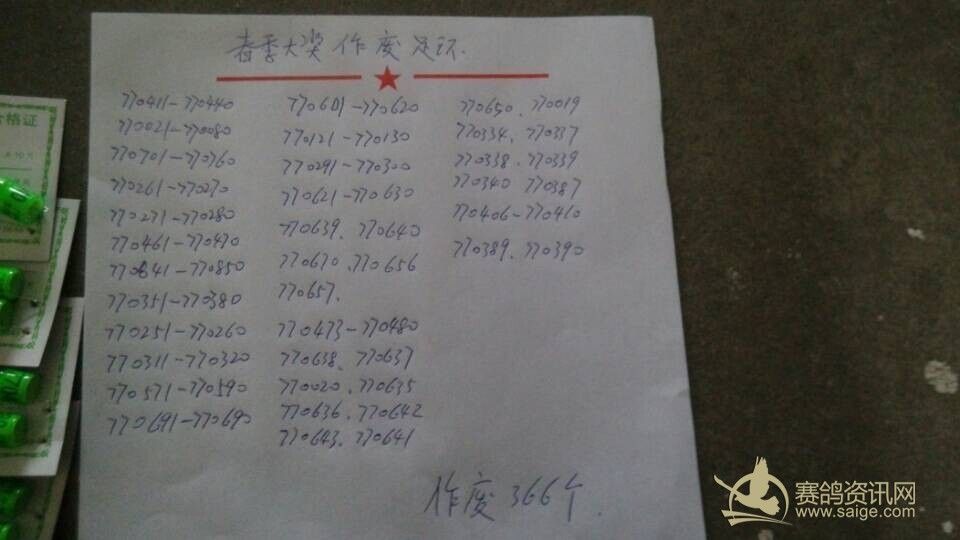 春季大奖作废足环.
770411-770440
770021-770080
770701-770760
770261-770270
770271-770280
770461-770470
770841-770850
770351-770380
770251-770260
770311-770320
770571-770590
770691-770690
770601-770620
770121-770130
770291-770300
770621-770630
770639、770640
770670、770656
770657、
770473-770480
770638、770637
770020、770635
770636、770642
770643、770641
770650、770019
770334、770337
770338、770339
770340 770387
770406-770410
770389、770390
作废366个.
格证
赛鸽资讯网
www.saige.com